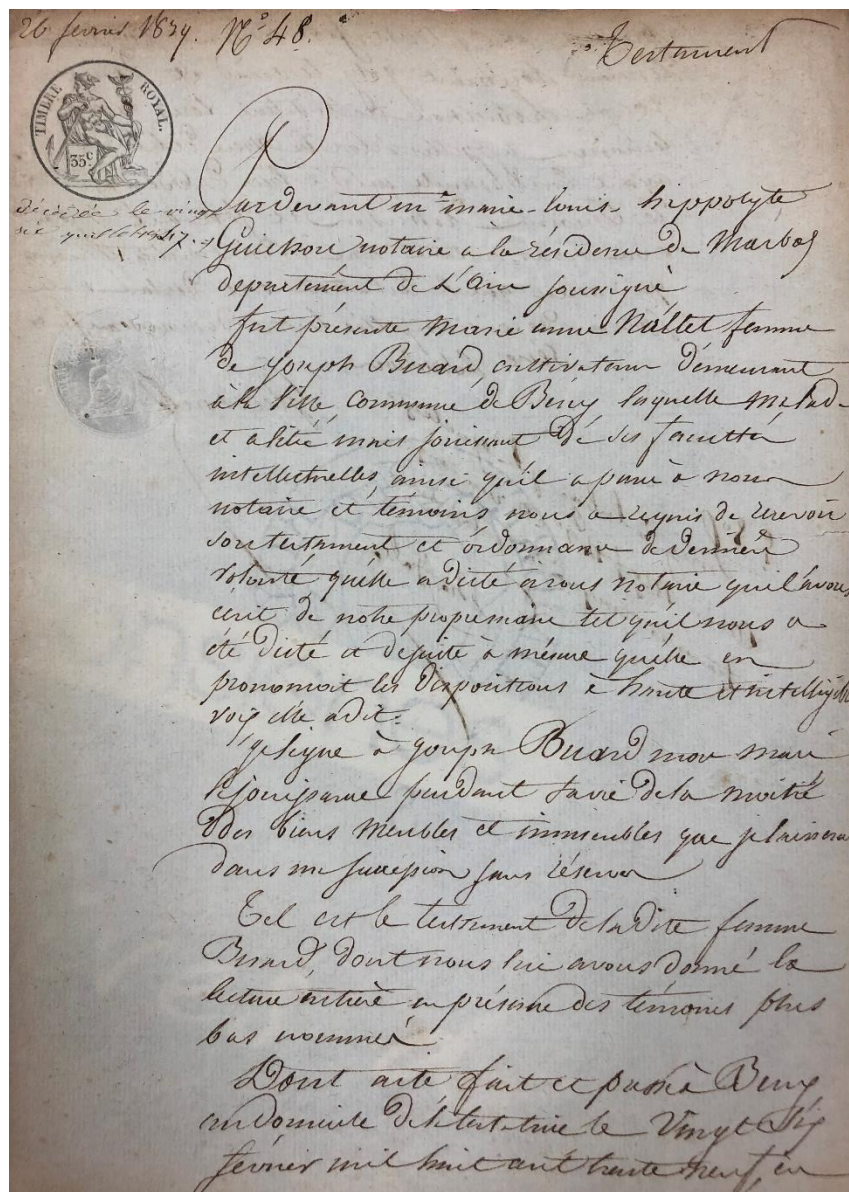 26 février 1839. N° 48.
Testament
TIMBRE ROYAL.
35 c.
décédée le vingt
six juillet
Pardevant me marie-louis hippolyte
Guichou notaire a la résidence de Marboz
département de L'Ain soussigné
fut présente Marie anne Nallet femme
de joseph Buard cultivateur démeurant
à la Ville Commune de Bény laquelle malade
et alitée mais jouissant dé ses facultés
intellectuelles, ainsi qu'il a paru à nous
notaire et témoins nous a requis de recevoir
son testament et ordonnance de derniére
volonté quelle a dicté à nous notaire qui l'avons
écrit de notre propre main tel qu'il nous a
été dicté et de suite à mésure quélle en
prononcoit les dispositions à haute et intelligible
voix elle a dit.
je légue à joseph Buard mon mari
la jouissance pendant sa vie de la moitié
des biens meubles et immeubles que je laisserai
dans ma succession sans réserve
Tel est le testament de la dite femme
Buard, dont nous lui avons donné la
lecture entière en présence des témoins plus
bas nommés
Dont acte fait et passé à Beny
au domicile de la testatrice le Vingt Six
février mil huit cent trente neuf, en